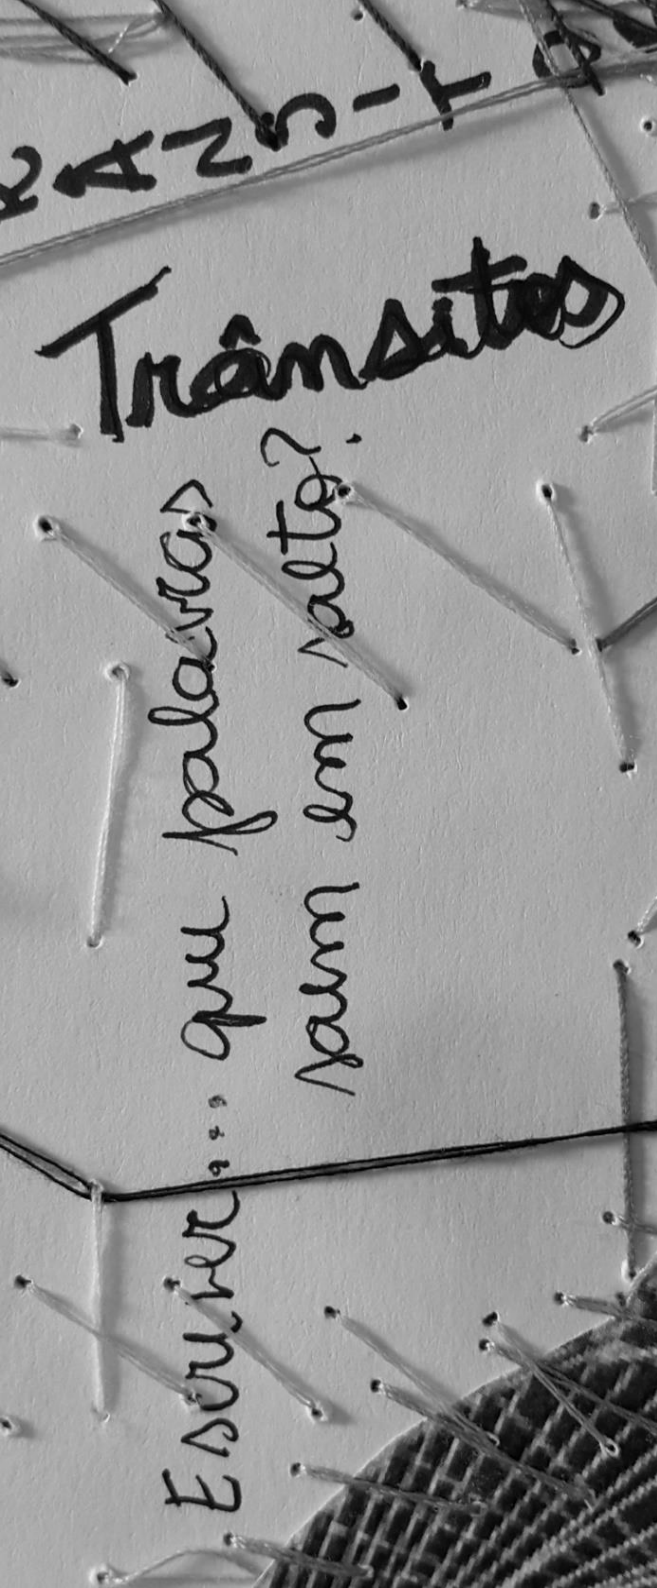 RANSITO
Trânsitos
Escrever... que palavras
saem em salto?